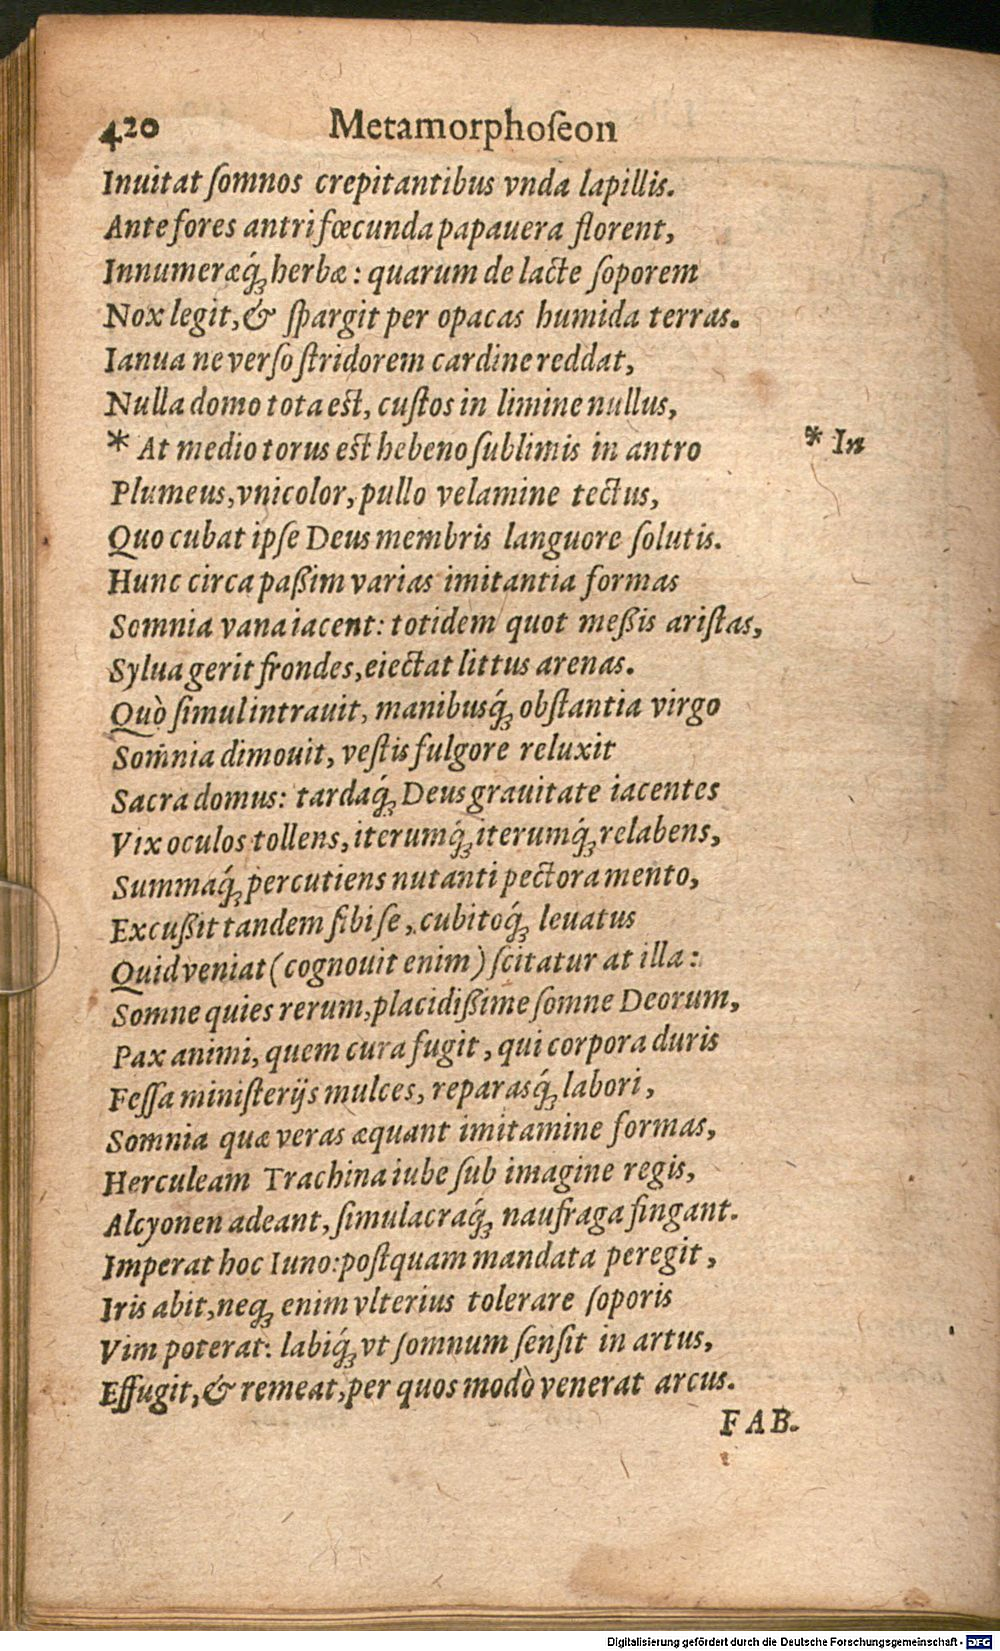 420 Metamorphoſeon
Inuitat ſomnos crepitantibus vnda lapillis.
Ante fores antri fœcunda papauera florent,
Innumeræq́ꝫ herbæ: quarum de lacte ſoporem
Nox legit, & ſpargit per opacas humida terras.
Ianua ne verſo ſtridorem cardine reddat,
Nulla domo tota eſt, cuſtos in limine nullus,
* At medio torus eſt hebeno ſublimis in antro * In
Plumeus, vnicolor, pullo velamine tectus,
Quo cubat ipſe Deus membris languore ſolutis.
Hunc circa paßim varias imitantia formas
Somnia vana iacent: totidem quot meßis ariſtas,
Sylua gerit frondes, eiectat littus arenas.
Quò ſimul intrauit, manibusq́ꝫ obſtantia virgo
Som̃nia dimouit, veſtis fulgore reluxit
Sacra domus: tardaq́ꝫ Deus grauitate iacentes
Vix oculos tollens, iterumq́ꝫ iterumq́ꝫ relabens,
Summaq́ꝫ percutiens nutanti pectora mento,
Excußit tandem ſibi ſe, cubitoq́ꝫ leuatus
Quid veniat (cognouit enim) ſcitatur at illa:
Somne quies rerum, placidißime ſomne Deorum,
Pax animi, quem cura fugit, qui corpora duris
Feſſa miniſterijs mulces, reparasq́ꝫ labori,
Somnia quæ veras æquant imitamine formas,
Herculeam Trachina iube ſub imagine regis,
Alcyonen adeant, ſimulacraq́ꝫ naufraga fingant.
Imperat hoc Iuno: poſtquam mandata peregit,
Iris abit, neqꝫ enim vlterius tolerare ſoporis
Vim poterat: labiq́ꝫ vt ſomnum ſenſit in artus,
Effugit, & remeat, per quos modò venerat arcus.
FAB.
Digitalisierung gefördert durch die Deutsche Forschungsgemeinschaft - DFG